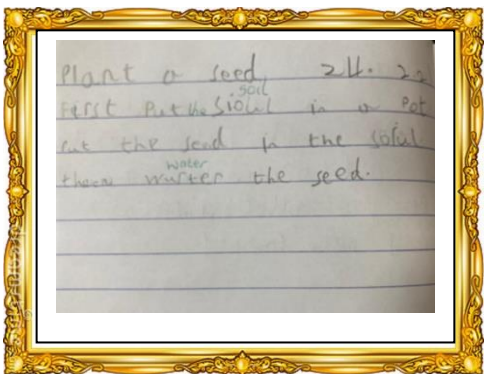 Plant a seed 24.
soil
First Put the Sioul in a Pot
Put the sead in the soiul
water
then wurter the seed.